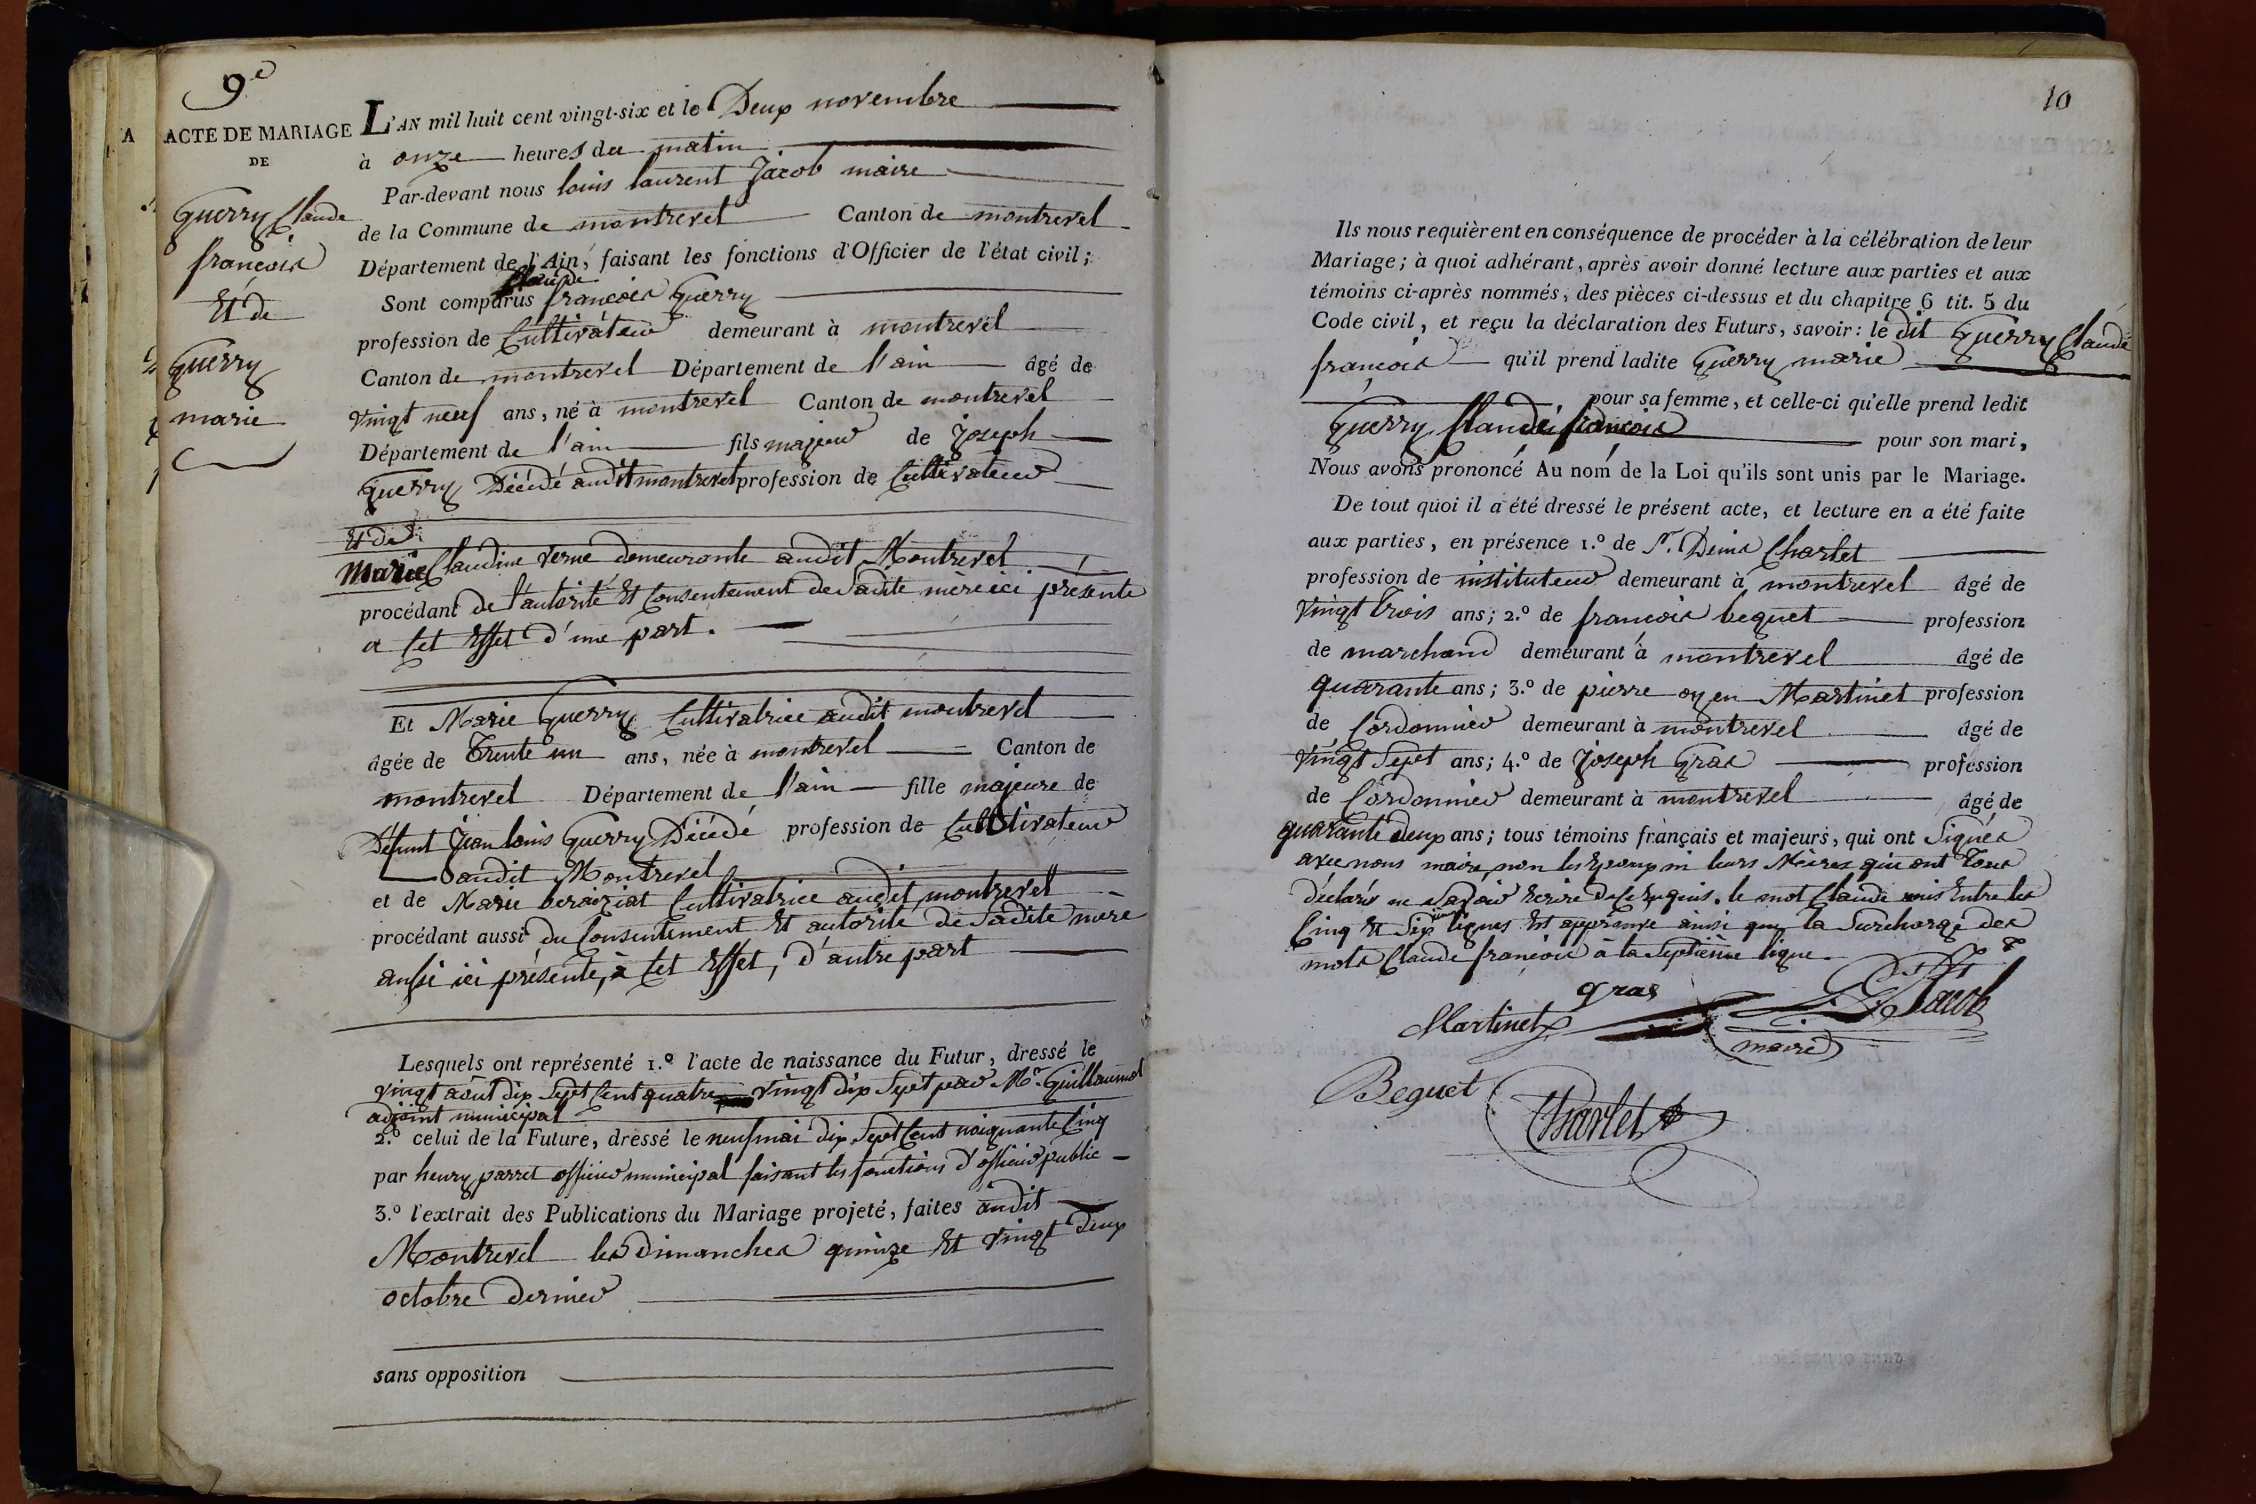 9e
A
ACTE DE MARIAGE
DE
Guerry Claude
françois
Et de
Guerry
marie
L'AN mil huit cent vingt-six et le Deux novembre
à onze heures du matin
Par-devant nous louis laurent Jacob maire
de la Commune de montrevel Canton de montrevel
Département de l'Ain, faisant les fonctions d'Officier de l'état civil;
Claude
Sont comparus françois Guerry
profession de Cultivateur demeurant à montrevel
Canton de montrevel Département de l'ain âgé de
vingt neuf ans, né à montrevel Canton de montrevel
Département de l'ain fils majeur de Joseph
Guerry Décédé audit montrevel profession de Cultivateur
Et de
Marie Claudine verne demeurante audit Montrevel
procédant de l'autorité Et Consentement de Sadite mère ici présente
a Cet Effet d'une part.
Et Marie Guerry Cultivatrice audit montrevel
âgée de Trente un ans, née à montrevel Canton de
montrevel Département de l'ain fille majeure de
Défunt Jean louis Guerry Décédé profession de Cultivateur
audit Montrevel
et de Marie Cultivatrice audit montrevel
procédant aussi du Consentement Et autorité de Sadite mère
aussi ici présente, à Cet Effet, d'autre part
Lesquels ont représenté 1.º l'acte de naissance du Futur, dressé le
vingt août dix Sept Cent quatre vingt dix Sept par Mr. Guillaumot
adjoint municipal
2.º celui de la Future, dressé le neuf mai dix Sept Cent noinquante Cinq
par henry parret officier municipal faisant les fonctions d'officier public
3.º l'extrait des Publications du Mariage projeté, faites audit
Montrevel les Dimanches quinze Et vingt Deux
octobre Dernier
sans opposition
10
Ils nous requièrent en conséquence de procéder à la célébration de leur
Mariage; à quoi adhérant, après avoir donné lecture aux parties et aux
témoins ci-après nommés, des pièces ci-dessus et du chapitre 6 tit. 5 du
Code civil, et reçu la déclaration des Futurs, savoir: le dit Guerry Claude
françois qu'il prend ladite Guerry marie
pour sa femme, et celle-ci qu'elle prend ledit
Guerry Claude françois pour son mari,
Nous avons prononcé Au nom de la Loi qu'ils sont unis par le Mariage.
De tout quoi il a été dressé le présent acte, et lecture en a été faite
aux parties, en présence 1.º de Sr. Denis Charlet
profession de instituteur demeurant à montrevel âgé de
vingt Trois ans; 2.º de françois beguet profession
de marchand demeurant à montrevel âgé de
quarante ans; 3.º de pierre oyen Martinet profession
de Cordonnier demeurant à montrevel âgé de
vingt Sept ans; 4.º de Joseph Gras profession
de Cordonnier demeurant à montrevel âgé de
quarante deux ans; tous témoins français et majeurs, qui ont Signés
avec nous maire, non les Epoux ni leurs Mères qui ont Tous
déclarés ne Savoir Ecrire De Ce Enquis. le mot Claude mis Entre les
Cinq Et Six lignes Est approuvé ainsi que la Surcharge des
mots Claude françois à la Septième ligne.
gras
Martinet
Jacob
maire
Beguet
Charlet